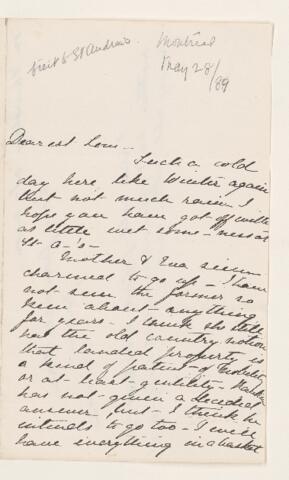 visit to St Andrews. Montreal
May 28/89
Dearest Lou -
Such a cold
day here like Winter again
but not much rain - I
hope you have got off with
as little wet some-ness at
St A's -
Mother & Eva seem
charmed to go up - I have
not seen the former so
keen about anything
for years - I think she still
has the old country notion
that landed property is
a kind of patent of
or at least gentility -
has not given a decided
answer but I think he
intends to go too - I will
have everything in a basket